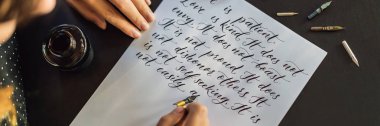 Love is patient
Love is kind. It does not
envy. It does not boast
It is not proud. It does
not dishonor others. It
is not self seeking. It is
not easily a